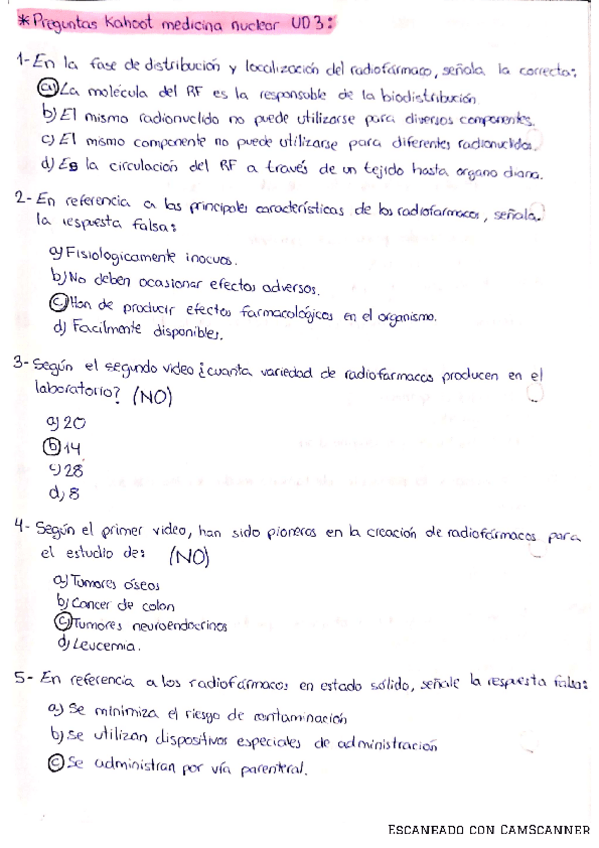 *Preguntas Kahoot medicina nuclear UD3:
1- En la fase de distribución y localización del radiofármaco, señala la correcta:
a) La molécula del RF es la responsable de la biodistribución
b) El mismo radionúclido no puede utilizarse para diversos componentes.
c) El mismo componente no puede utilizarse para diferentes radionúclidos.
d) Es la circulación del RF a través de un tejido hasta órgano diana.
2- En referencia a las principales características de los radiofármacos, señala
la respuesta falsa:
a) Fisiologicamente inocuos.
b) No deben ocasionar efectos adversos.
c) Han de producir efectos farmacológicos en el organismo.
d) Facilmente disponibles.
3- Según el segundo video ¿cuanta variedad de radiofarmacos producen en el
laboratorio? (NO)
a) 20
b) 14
c) 28
d) 8
4- Según el primer video, han sido pioneros en la creación de radiofármacos para
el estudio de: (NO)
a) Tumores óseos
b) Cancer de colon
c) Tumores neuroendocrinos
d) Leucemia.
5- En referencia a los radiofármacos en estado sólido, señale la respuesta falsa:
a) Se minimiza el riesgo de contaminación
b) Se utilizan dispositivos especiales de administración
c) Se administran por vía parenteral.
ESCANEADO CON CAMSCANNER